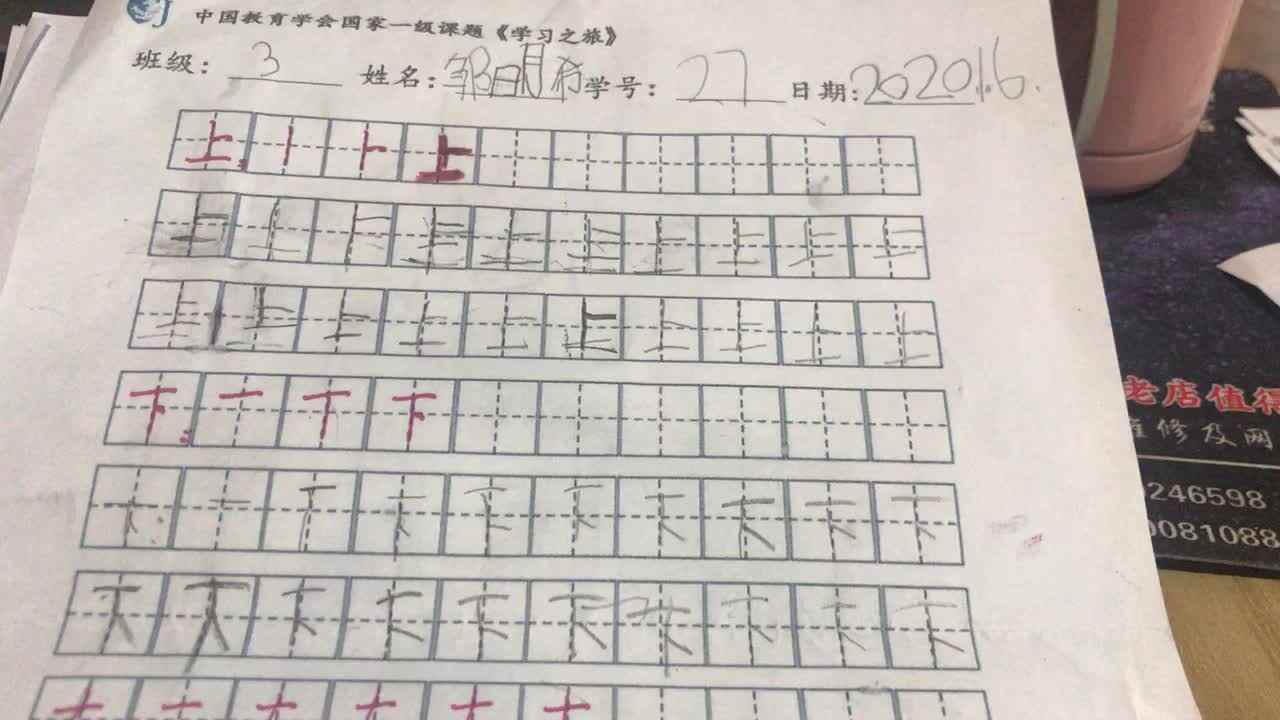 中国教育学会国家一级课题《学习之旅》
班级: 3 姓名: 邹明 学号: 27 日期: 2020.1.6.
上 丨 ⺊ 上
上 上 上 上 上 上 上 上 上 上
上 上 上 上 上 上 上 上 上 上
下 一 丅 下
下 下 下 下 下 下 下 下 下
下 下 下 下 下 下 下 下 下 下
老店值得
维修及网
0246598
0081088